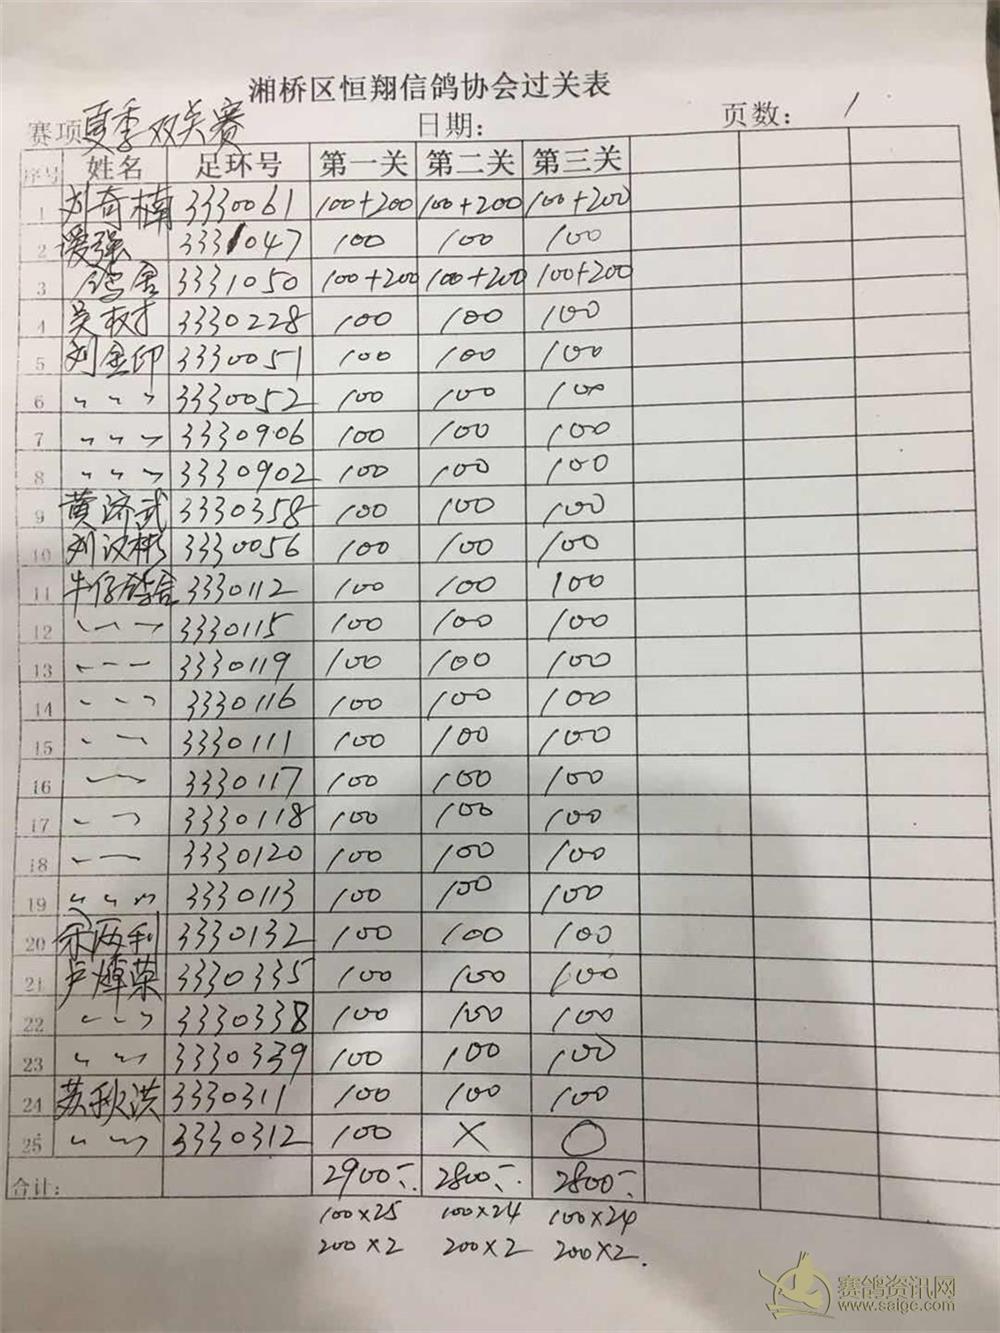 湘桥区恒翔信鸽协会过关表
赛项 夏季双关赛 日期: 页数: 1
序号 姓名 足环号 第一关 第二关 第三关
1 刘奇楠 3330061 100+200 100+200 100+200
2 强 3331047 100 100 100
3 鸽舍 3331050 100+200 100+200 100+200
4 吴树 3330228 100 100 100
5 刘金印 3330051 100 100 100
6 〃 〃 〃 3330052 100 100 100
7 〃 〃 〃 3330906 100 100 100
8 〃 〃 〃 3330902 100 100 100
9 黄济武 3330358 100 100 100
10 刘汉彬 3330056 100 100 100
11 牛仔鸽舍 3330112 100 100 100
12 〃 〃 〃 3330115 100 100 100
13 〃 〃 〃 3330119 100 100 100
14 〃 〃 〃 3330116 100 100 100
15 〃 〃 3330111 100 100 100
16 〃 〃 3330117 100 100 100
17 〃 〃 3330118 100 100 100
18 〃 〃 3330120 100 100 100
19 〃 〃 〃 3330113 100 100 100
20 余两利 3330132 100 100 100
21 卢焯荣 3330335 100 100 100
22 〃 〃 〃 3330338 100 100 100
23 〃 〃 〃 3330339 100 100 100
24 苏秋洪 3330311 100 100 100
25 〃 〃 〃 3330312 100 × ○
合计: 2900 2800 2800
100×25 100×24 100×24
200×2 200×2 200×2.
赛鸽资讯网
www.saige.com